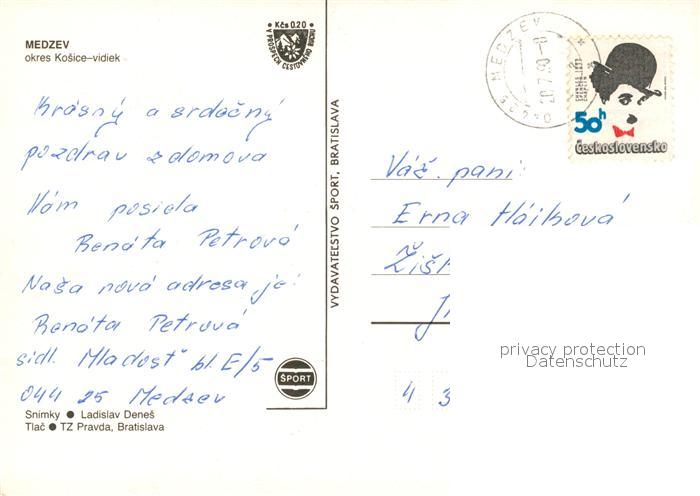 MEDZEV
okres Košice–vidiek
Kčs 0.20
V PROSPECH CESTOVNÉHO RUCHU
Krásný a srdečný
pozdrav z domova
Vám posiela
Renáta Petrová
Naša nová adresa je:
Renáta Petrová
sídl. Mladosť bl. E/5
044 25 Medzev
ŠPORT
Snímky ● Ladislav Deneš
Tlač ● TZ Pravda, Bratislava
VYDAVATEĽSTVO ŠPORT, BRATISLAVA
MEDZEV
50h
Československo
Váž. pani:
Erna Hálková
4 3
privacy protection
Datenschutz